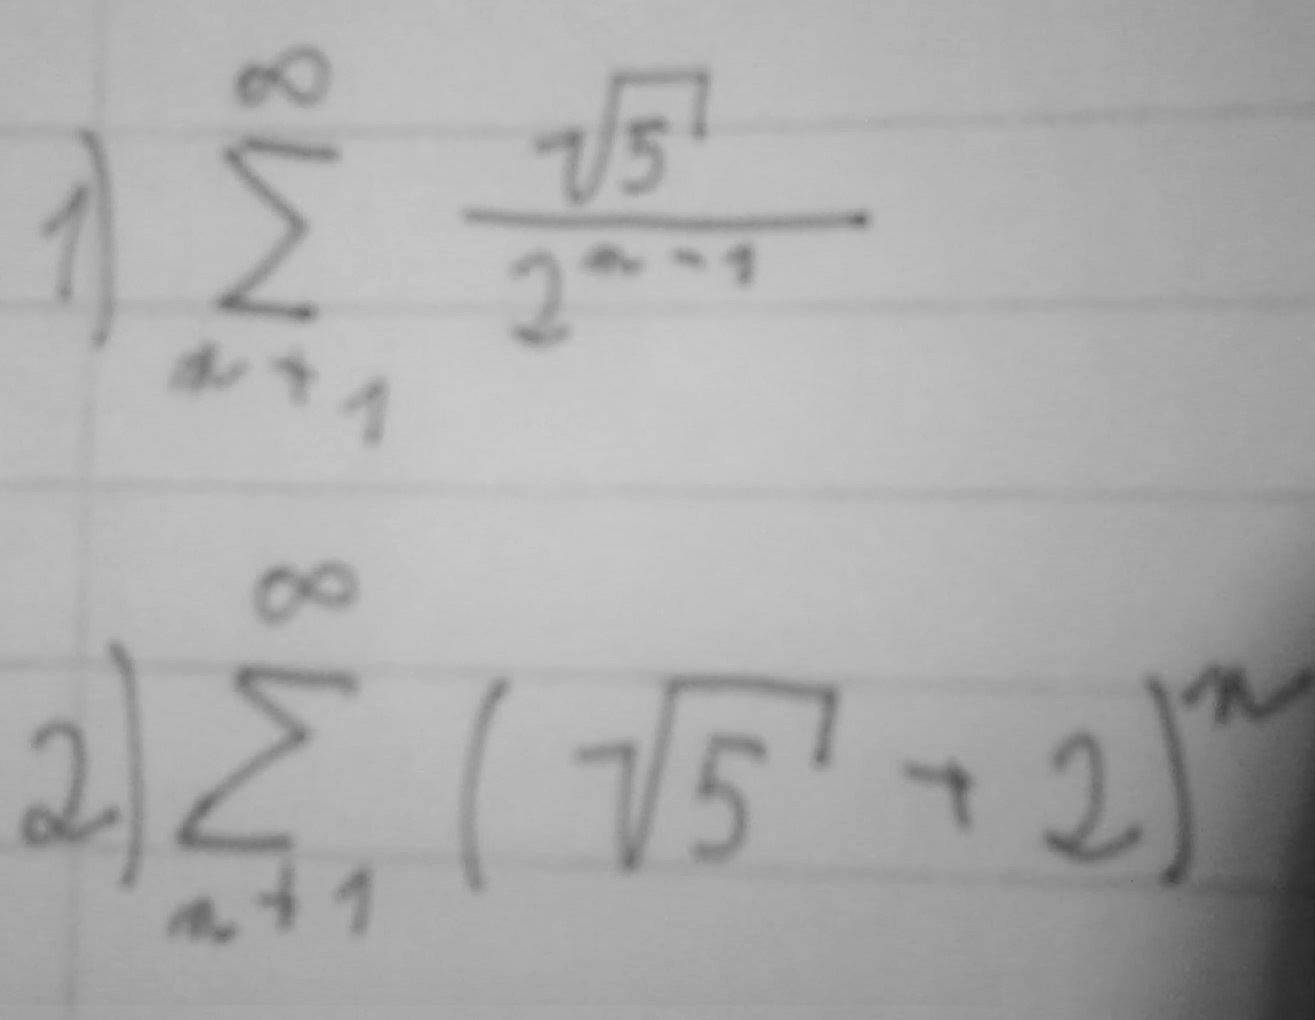 1) ∞ ∑ n+1 √5 / 2^(n-1)
2) ∞ ∑ n+1 (√5 + 2)^n